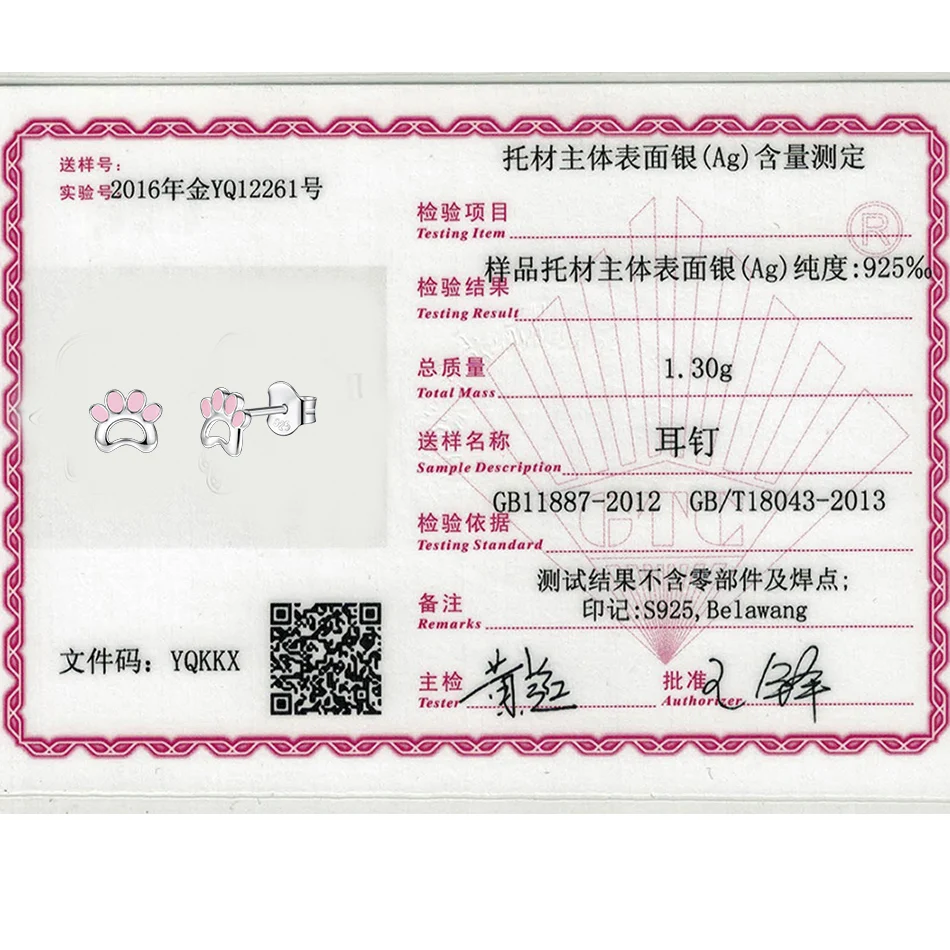 送样号：
实验号2016年金YQ12261号
托材主体表面银(Ag)含量测定
检验项目
Testing Item
®
样品托材主体表面银(Ag)纯度:925‰
检验结果
Testing Result
总质量
1.30g
Total Mass
送样名称
耳钉
Sample Description
GB11887-2012 GB/T18043-2013
检验依据
GTC
Testing Standard
测试结果不含零部件及焊点;
备注
印记:S925,Belawang
Remarks
文件码：YQKKX
主检
批准
Tester
Authorizer